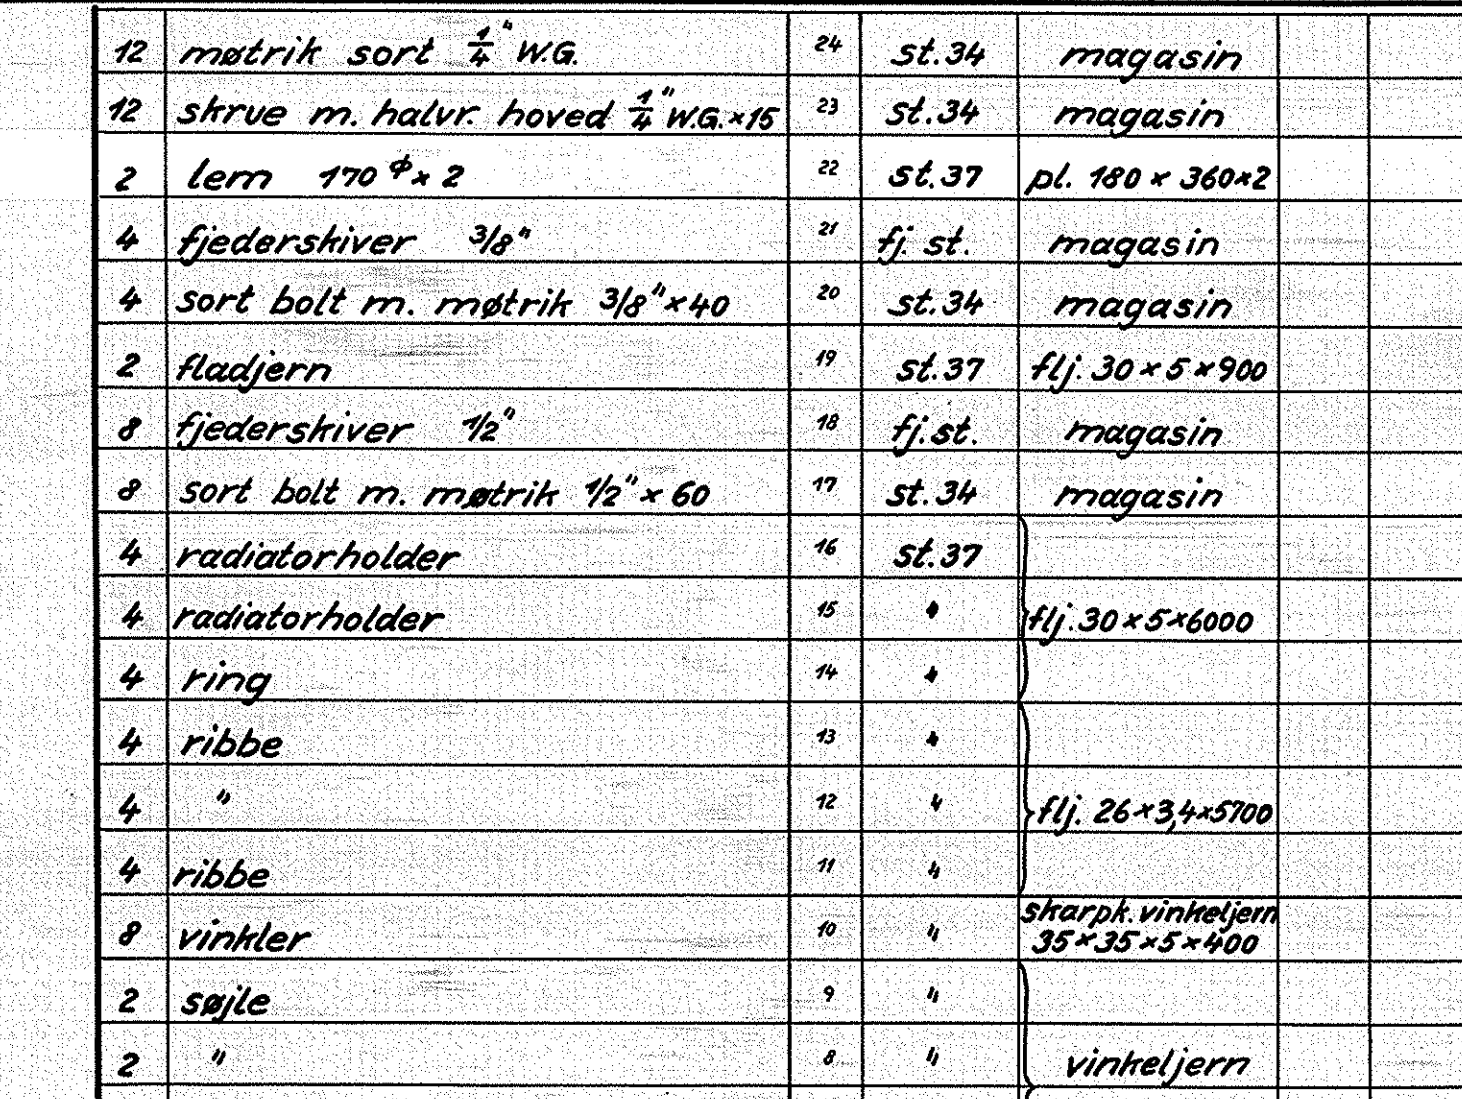 12 møtrik sort 1/4" W.G. 24 st.34 magasin
12 skrue m. halvr. hoved 1/4" W.G.×15 23 st.34 magasin
2 lem 170 ϕ × 2 22 st.37 pl. 180 × 360×2
4 fjederskiver 3/8" 21 fj. st. magasin
4 sort bolt m. møtrik 3/8"×40 20 st.34 magasin
2 fladjern 19 st.37 flj. 30 × 5 ×900
8 fjederskiver 1/2" 18 fj.st. magasin
8 sort bolt m. møtrik 1/2" × 60 17 st.34 magasin
4 radiatorholder 16 st.37
4 radiatorholder 15 " flj.30×5×6000
4 ring 14 "
4 ribbe 13 "
4 " 12 " flj. 26×3,4×5700
4 ribbe 11 "
8 vinkler 10 " skarpk. vinkeljern
35×35×5×400
2 søjle 9 "
2 " 8 " vinkeljern